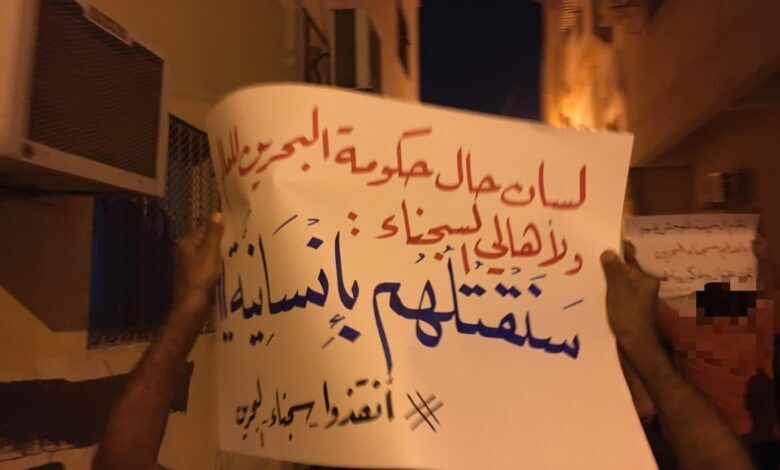 لسان حال حكومة البحرين للعالم
ولأهالي السجناء :
سَنَقْتُلُهُم بِإنْسَانِيَّة !!
# أنقذوا_سجناء_البحرين